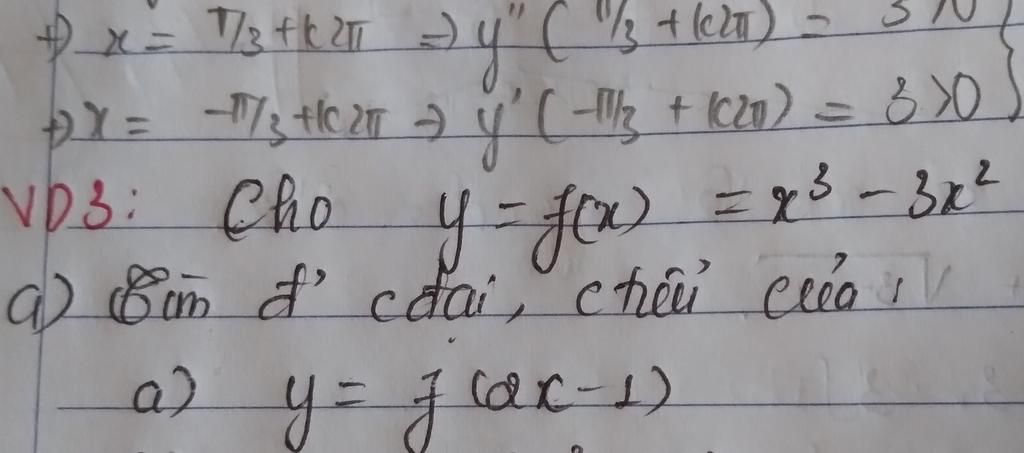 +) x = π/3 + k2π => y''(π/3 + k2π) = 3 > 0 }
+) x = -π/3 + k2π => y'(-π/3 + k2π) = 3 > 0
VD3: Cho y = f(x) = x³ - 3x²
a) Tìm đ' cđại, ctiểu của
a) y = f(2x-1)